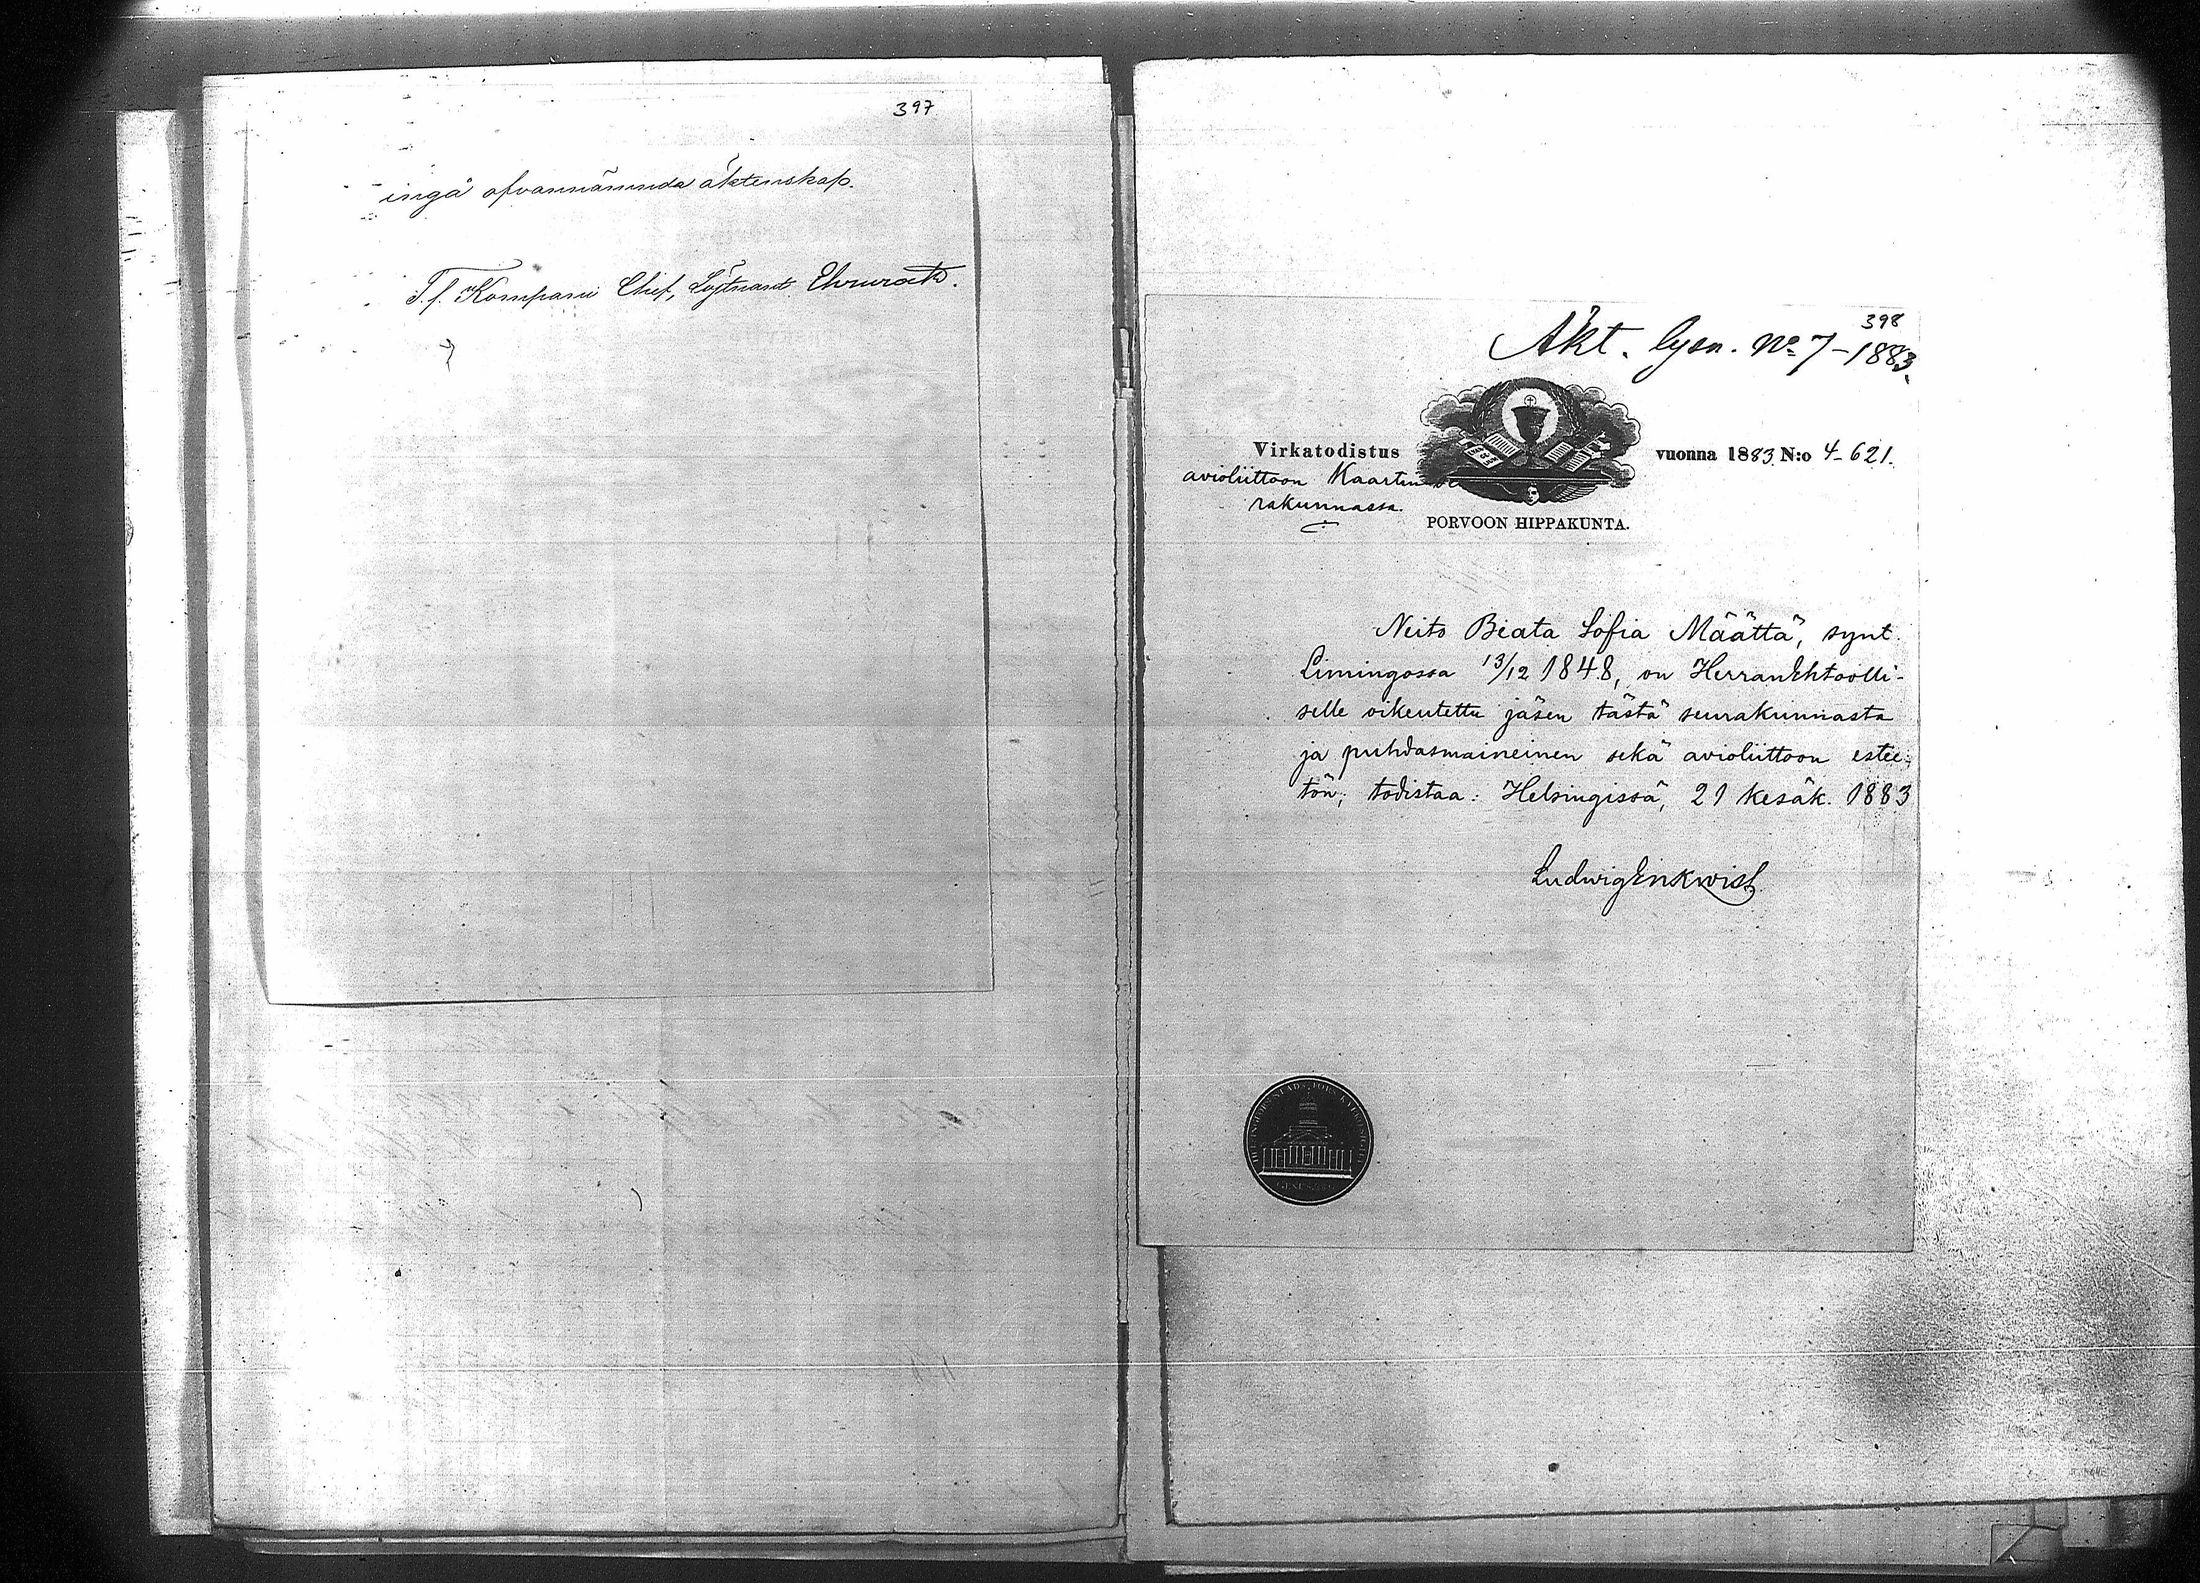 397
ingå ofvannämnda äktenskap.
T.f. Kompani Chef, Löjtnant Ehrnrooth.
398
Äkt. lysn. No 7-1883.
Virkatodistus vuonna 1883 N:o 4-621.
avioliittoon Kaartin
rakunnassa.
PORVOON HIPPAKUNTA.
Neito Beata Sofia Määttä, synt.
Limingossa 13/12 1848, on Herran Ehtoolli-
selle oikeutettu jäsen tästä seurakunnasta
ja puhdasmaineinen sekä avioliittoon estee-
tön; todistaa: Helsingissä, 21 kesäk. 1883
Ludwig Enkwist